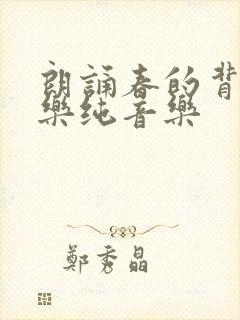 朗誦春的背
樂纯音樂
鄭秀晶